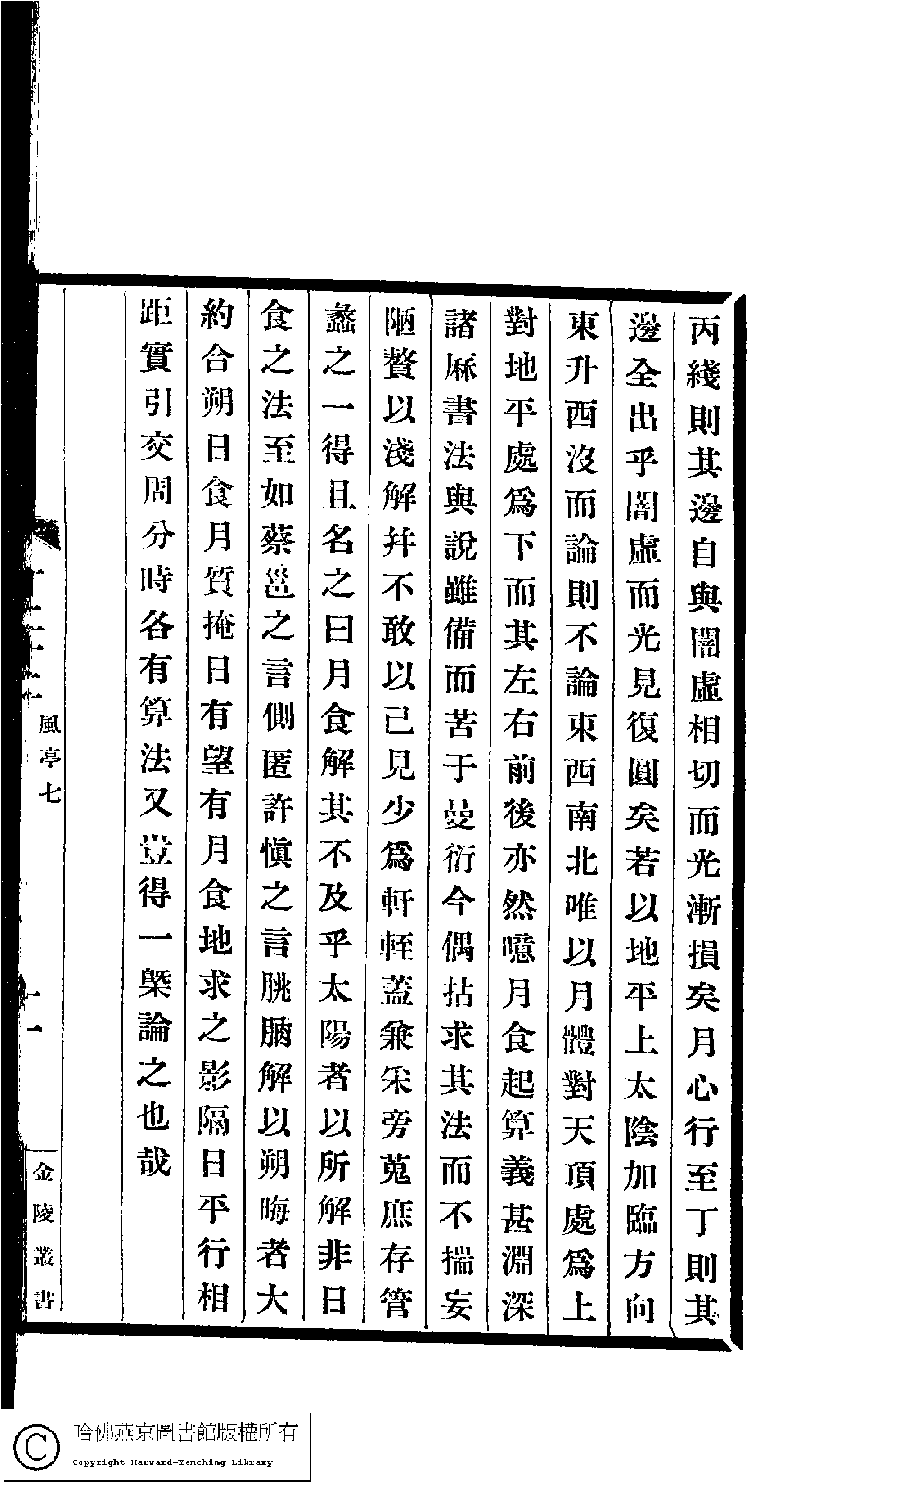 丙綫則其邊自與闇虛相切而光漸損矣月心行至丁則其
邊全出乎闇虛而光見復圓矣若以地平上太陰加臨方向
東升西沒而論則不論東西南北唯以月體對天頂處爲上
對地平處爲下而其左右前後亦然噫月食起算義甚淵深
諸厤書法與說雖備而苦于蔓衍今偶拈求其法而不揣妄
陋贅以淺解幷不敢以己見少爲軒輊蓋兼采旁蒐庶存管
蠡之一得且名之曰月食解其不及乎太陽者以所解非日
食之法至如蔡邕之言側匿許愼之言朓朒解以朔晦者大
約合朔日食月質掩日有望有月食地求之影隔日平行相
距實引交周分時各有算法又豈得一槩論之也哉
風亭七
十一
金陵叢書
哈佛燕京圖書館版權所有
Copyright Harvard-Yenching Library